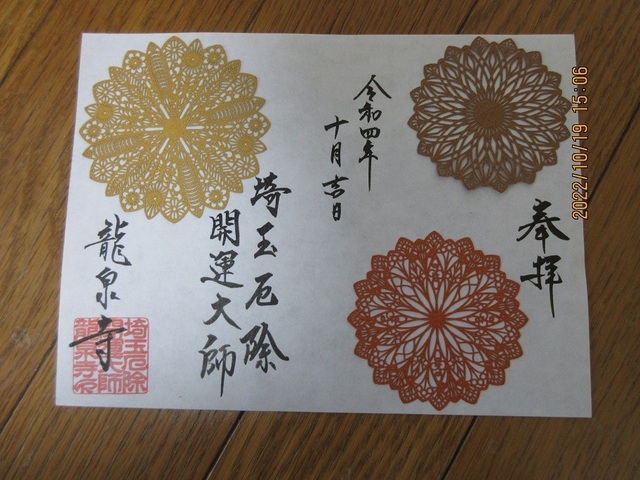 奉拝
令和四年
十月吉日
埼玉厄除
開運大師
龍泉寺
埼玉厄除
開運大師
龍泉寺印
2022/10/19 15:06